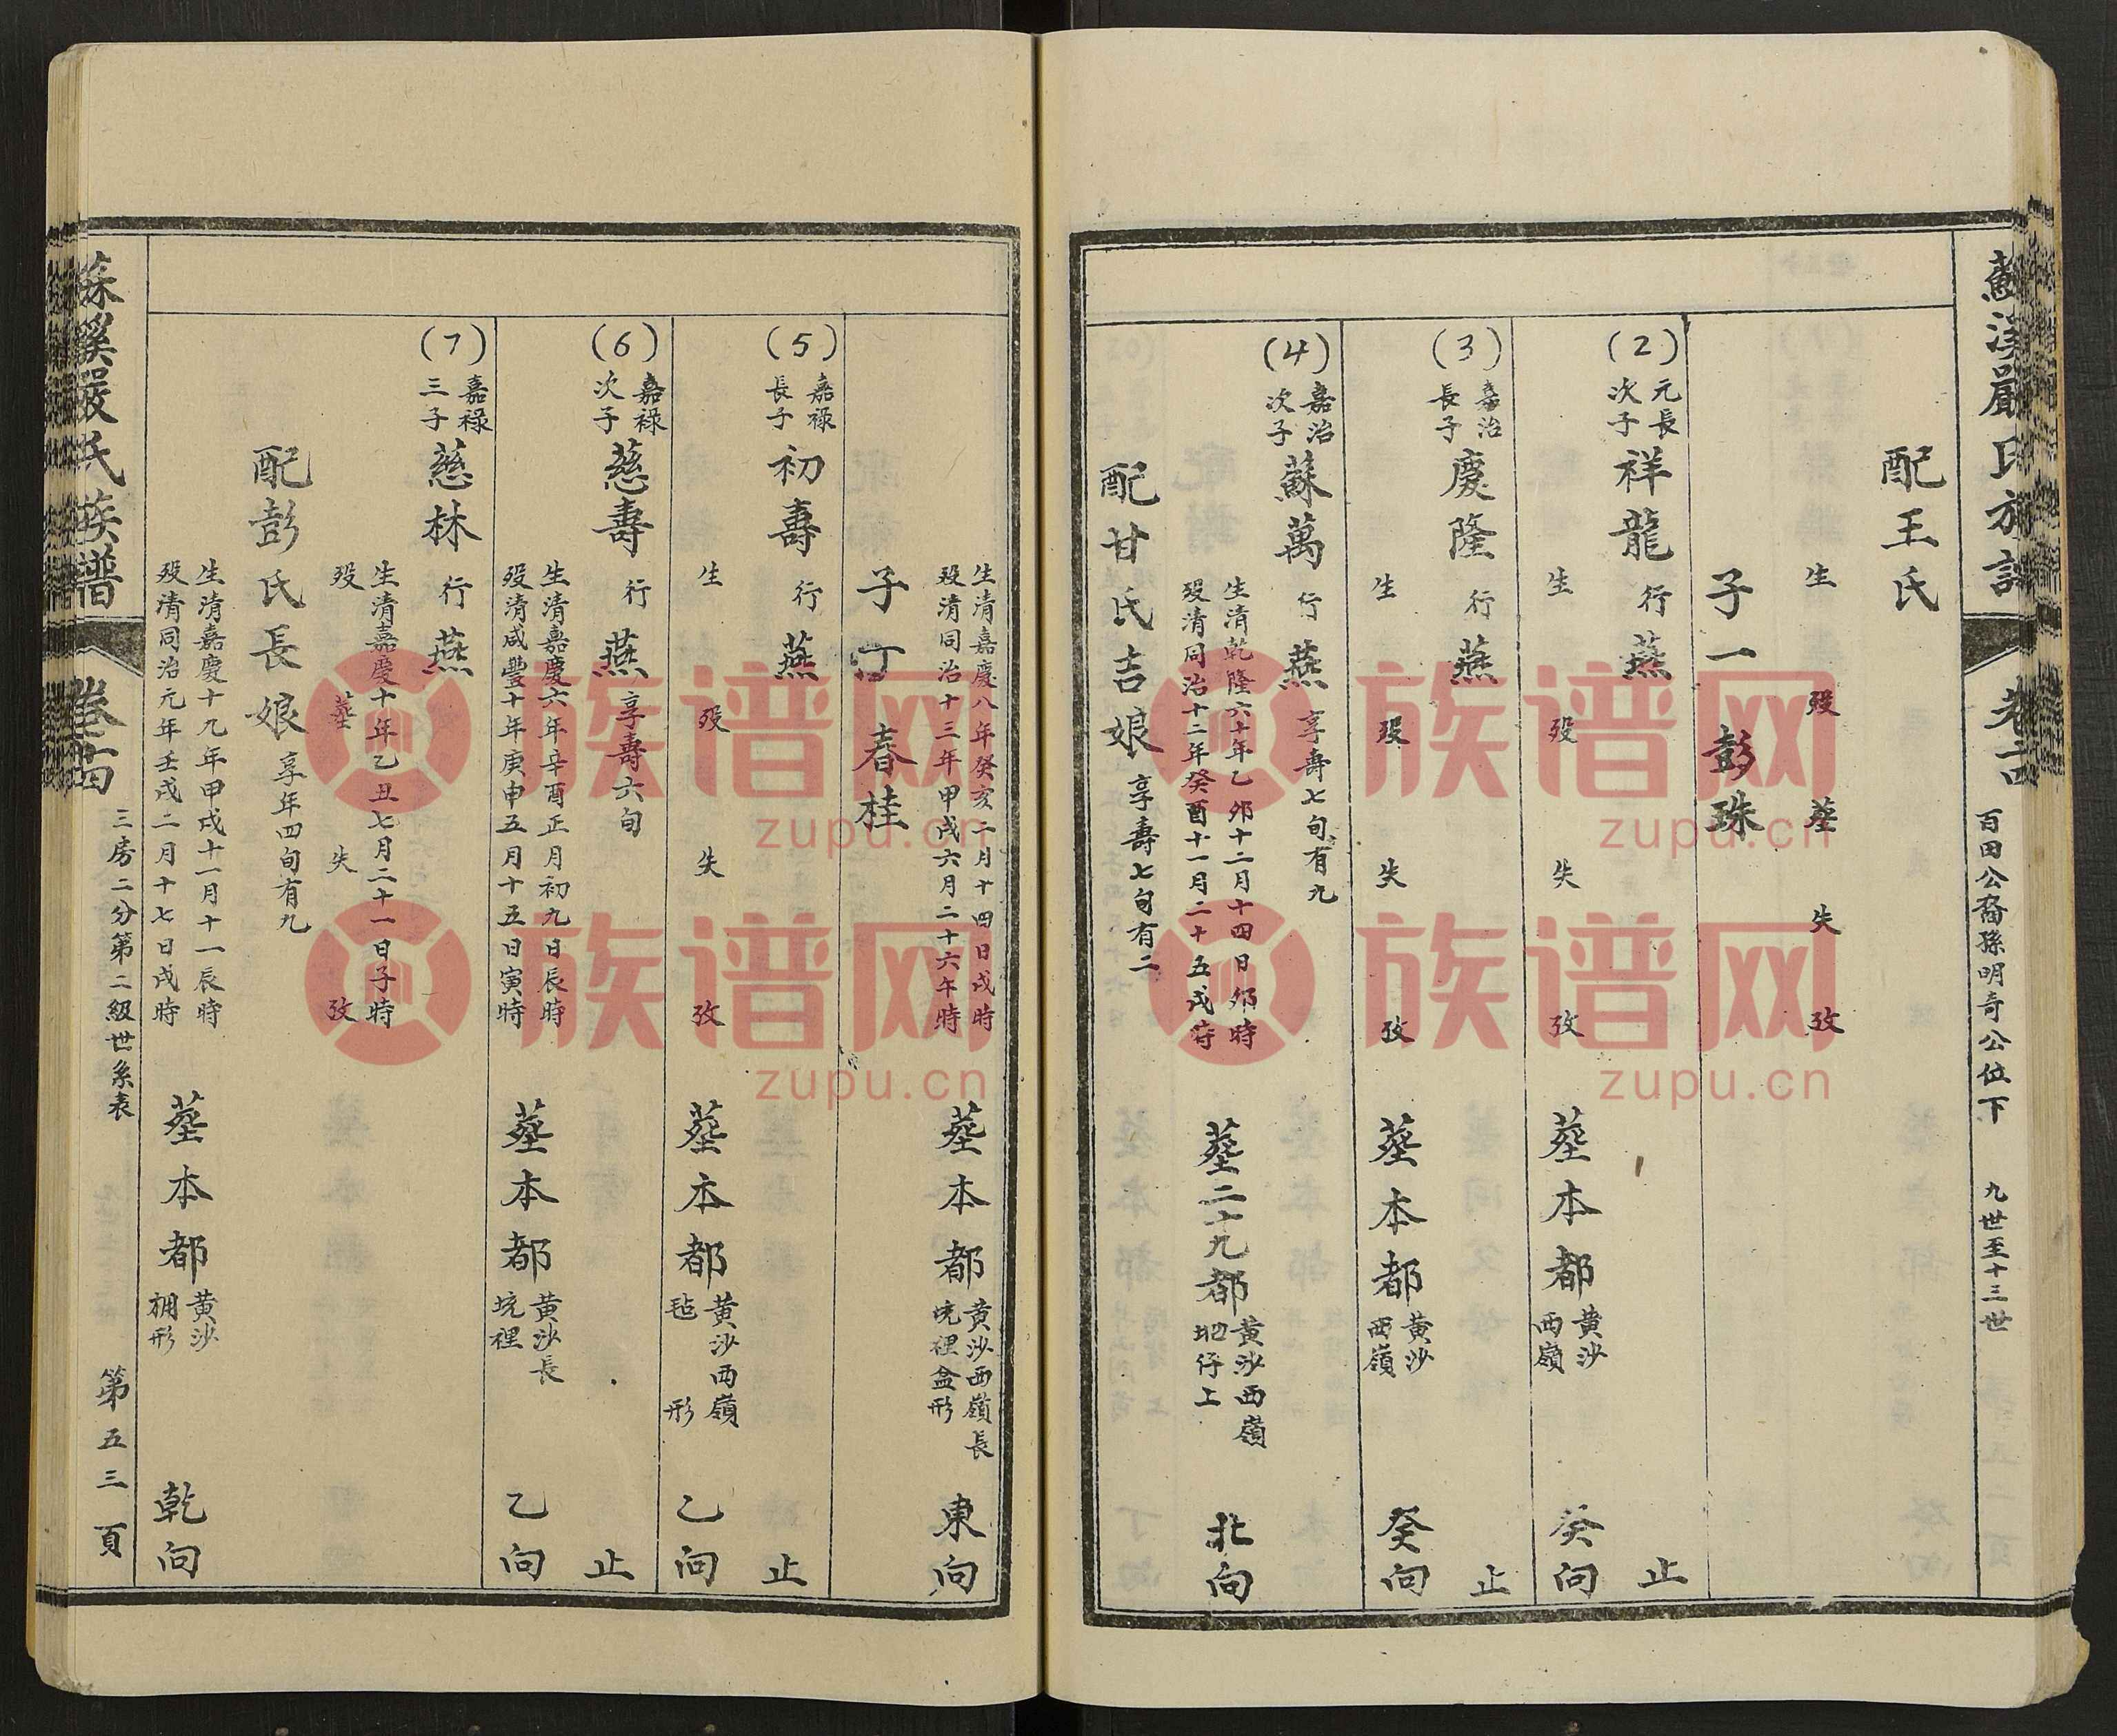 蘇溪嚴氏族譜 卷二四 百田公裔孫明奇公位下 九世至十三世
配王氏
生 歿 塟 失 攷
子一 彭珠
(2) 元長次子 祥龍 行 燕 止
生 歿 失 攷 塟本都 黄沙西嶺 癸向
(3) 嘉治長子 慶隆 行 燕 止
生 歿 失 攷 塟本都 黄沙西嶺 癸向
(4) 嘉治次子 蘇萬 行 燕 享壽七旬有九
生清乾隆六十年乙夘十二月十四日夘時
歿清同治十二年癸酉十一月二十五戌時
塟二十九都 黄沙西嶺地仔上 北向
配甘氏吉娘 享壽七旬有二
生清嘉慶八年癸亥二月十四日戌時
歿清同治十三年甲戌六月二十六午時
塟本都 黄沙西嶺長坑裡盒形 東向
子丁 春桂
(5) 嘉禄長子 初壽 行 燕 止
生 歿 失 攷 塟本都 黄沙西嶺毡形 乙向
(6) 嘉禄次子 慈壽 行 燕 享壽六旬 止
生清嘉慶六年辛酉正月初九日辰時
歿清咸豐十年庚申五月十五日寅時
塟本都 黄沙長坑裡 乙向
(7) 嘉禄三子 慈林 行 燕
生清嘉慶十年乙丑七月二十一日子時
歿 塟 失 攷
配彭氏長娘 享年四旬有九
生清嘉慶十九年甲戌十一月十一辰時
歿清同治元年壬戌二月十七日戌時
塟本都 黄沙棚形 乾向
蘇溪嚴氏族譜 卷廿四 三房二分第二級世系表 第五三頁
族谱网
zupu.cn
族谱网
zupu.cn
族谱网
zupu.cn
族谱网
zupu.cn